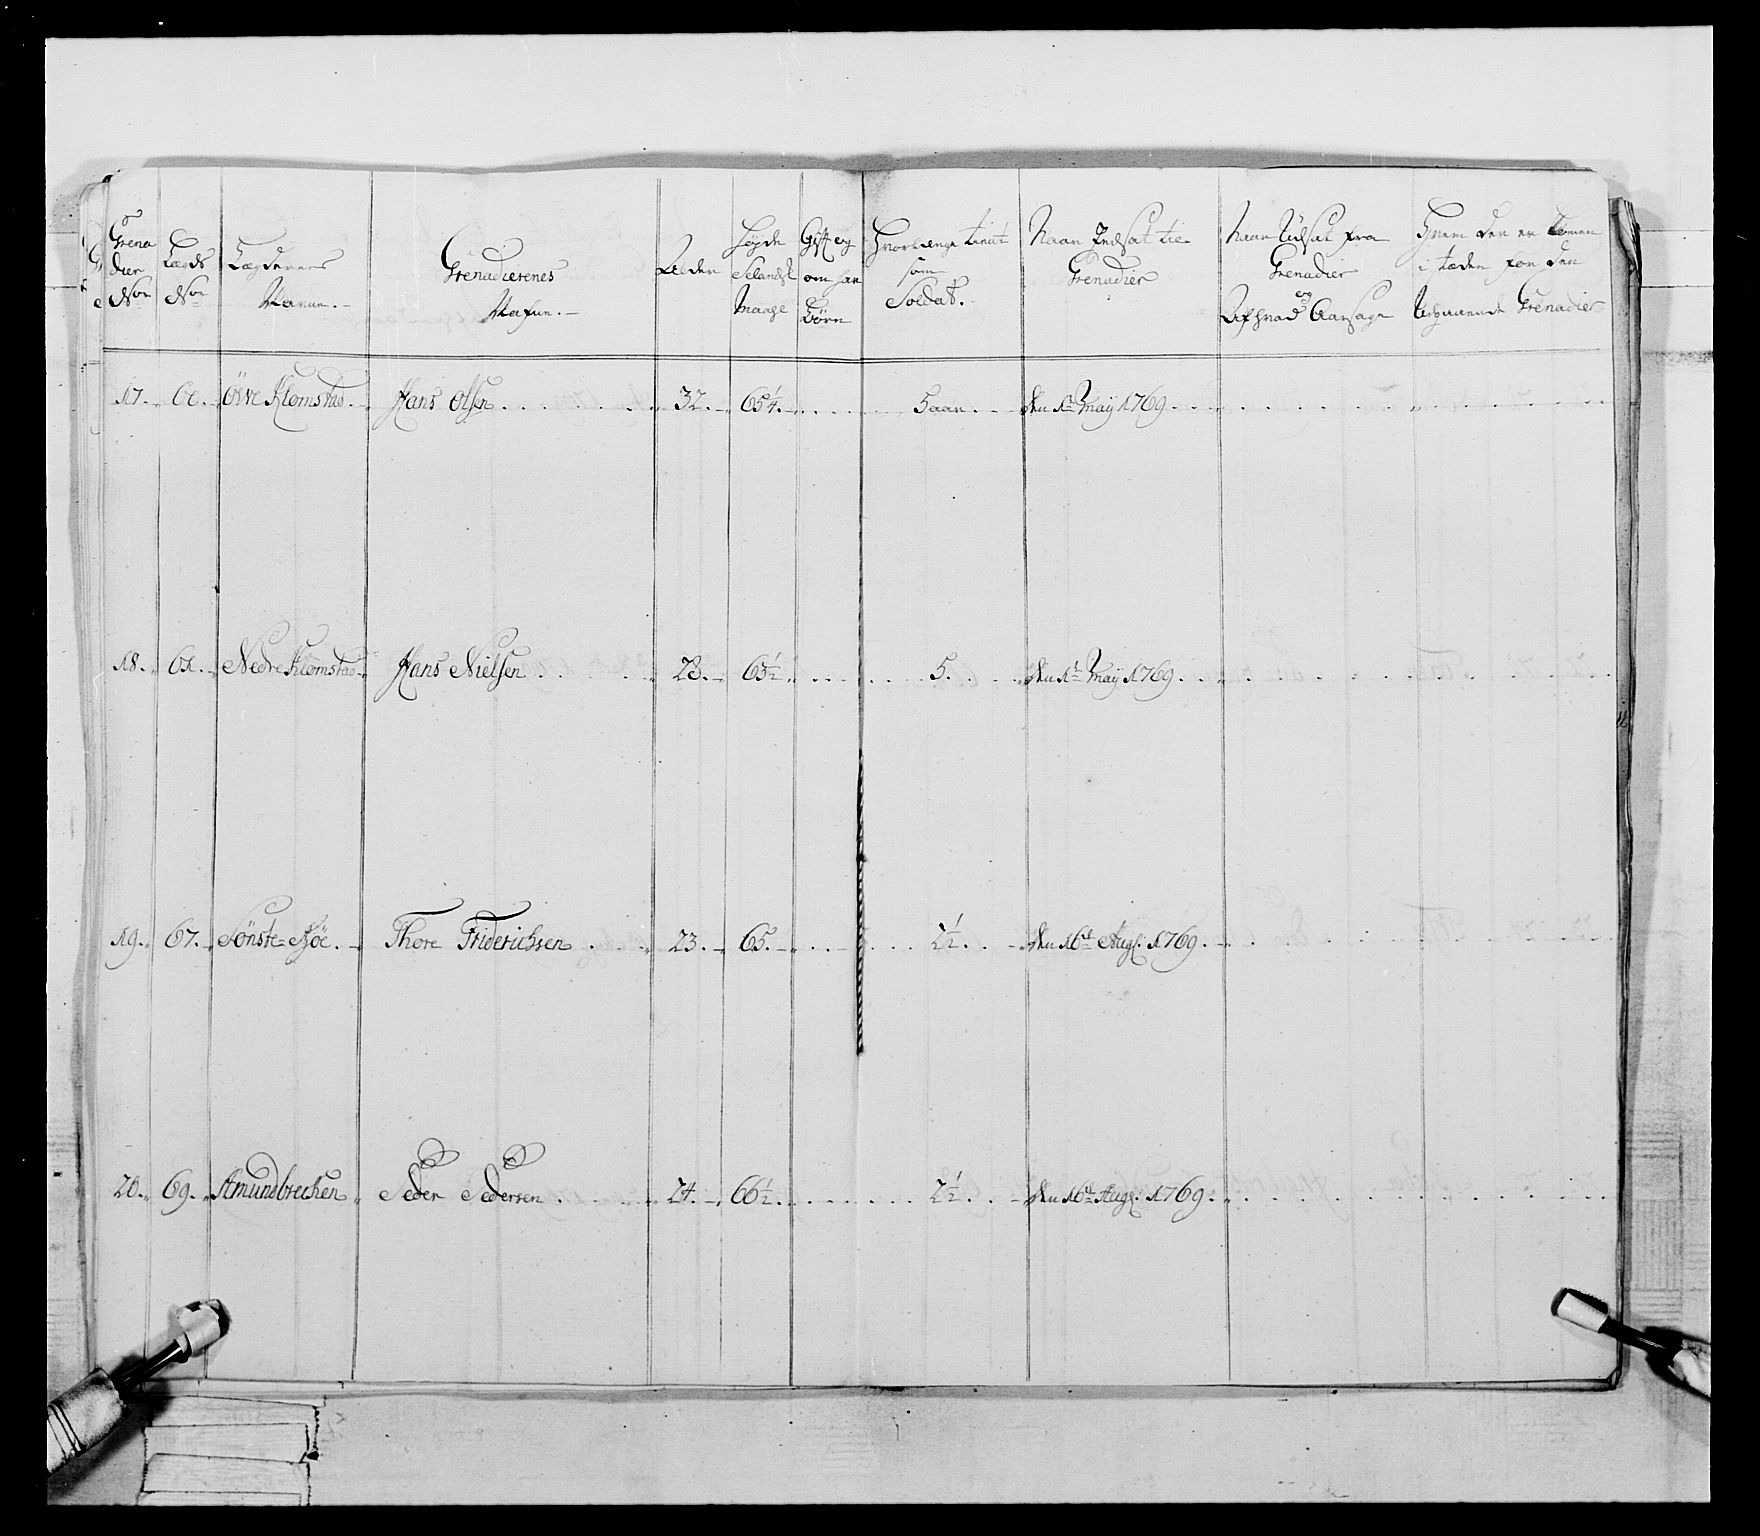 Grena
dier
No
Lægds
No
Lægdernes
Nafne.
Grenadierenes
Nafne.
Alder
Høyde
Selandsk
Maahl
Gift og
om har
Børn
Hvorlænge tient
som
Soldat.
Naar Indsat til
Grenadier
Naar Udsat fra
Grenadier
og
Af hvad Aarsage
Hvem der er kommen
i stæden for den
Udgaaende Grenadier
17. 60. Øvre Klomstad. Hans Olsen 32. 65¼. 5 aar. den 1te May 1769.
18. 61. Nedre Klomstad Hans Nielsen 28. 65½ 5. den 1te May 1769.
19. 67. Sönste-Bye. Thore Friderichsen 23. 65. 2½. den 16de Augs. 1769.
20. 69. Amundbrechen Peder Pedersen 24. 66½. 2½. den 16de Augs. 1769.